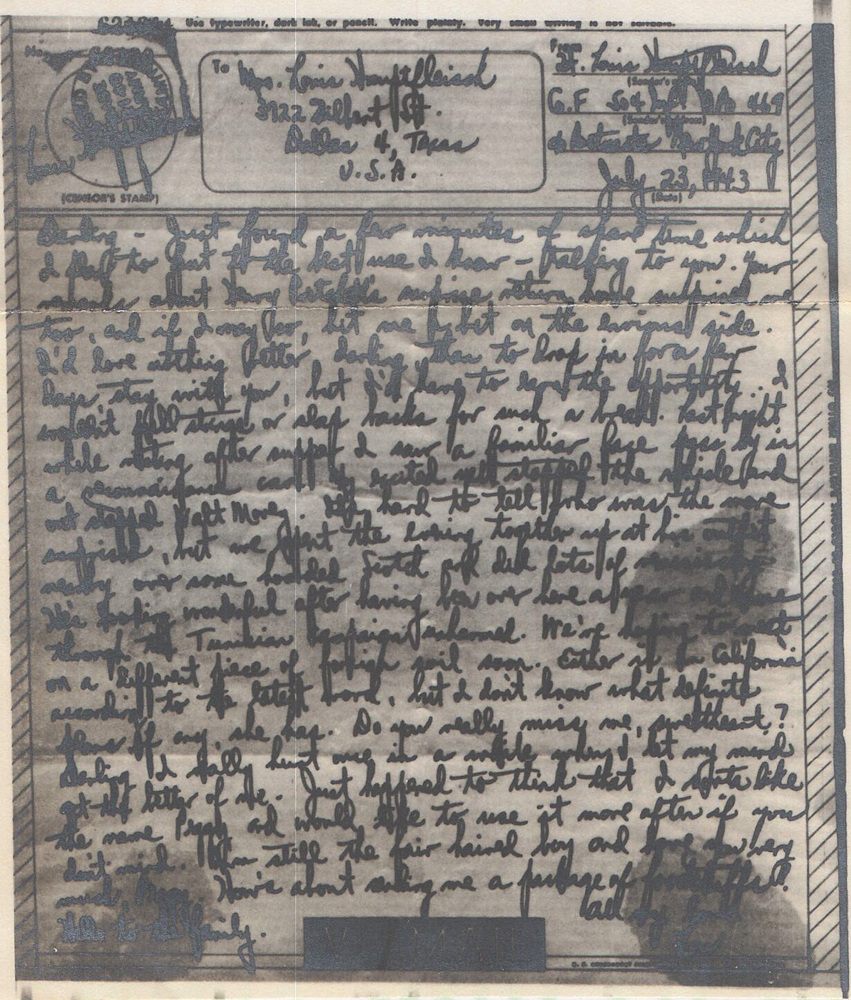 Use typewriter, dark ink, or pencil. Write plainly. Very small writing is not suitable.
To
Mrs. Louis Hauptfleisch
3922 Gilbert St.
Dallas 4, Texas
U.S.A.
From
Lt. Louis Hauptfleisch
(Sender's name)
G.F. 504 A.P.O. 469
(Sender's address)
c/o Postmaster New York City
July 23, 1943
(Date)
(CENSOR'S STAMP)
Darling - Just found a few minutes of spare time which
I to put to the best use I know - talking to you. Your
remarks about Henry surprise return home surprised me
too, and if I may too, hit me a bit on the envious side.
I'd love nothing better, darling, than to drop in for a few
days stay with you, but I'd have to earn the opportunity. I
wouldn't pull strings or slap backs for such a break. Last night
while after supper I saw a familiar face pass by in
a reconnaissance car. My excited yell stopped the vehicle and
out stepped Walt hard to tell who was the more
surprised, but we spent the evening together up at his outfit
nearby over some hoarded Scotch and did lots of
He's looking wonderful after having been over here a year and
through the Tunisian Campaign unharmed. We're hoping to meet
on a different piece of foreign soil soon. Esther is in California
according to the latest word, but I don't know what definite
plans if any, she has. Do you really miss me, sweetheart?
Darling I really hurt once in a while when I let my mind
get the better of me. Just happened to think that I sorta like
the name Peggy and would like to use it more often if you
don't mind. I'm still the fair haired boy and love you very
much, Peggy. How's about sending me a package of foodstuffs?
All my love
Hello to the family.
V-MAIL